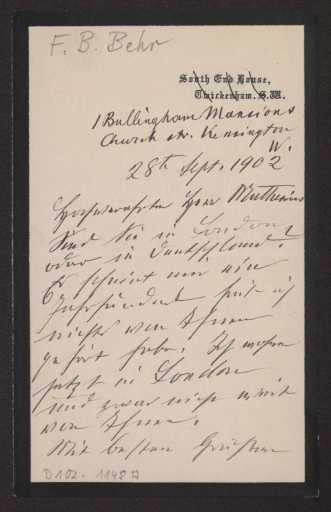 F. B. Behr
South End House,
Twickenham. S.W.
1 Bullingham Mansions
Church str. Kensington
W.
28th Sept. 1902
Hochverehrter Herr Muthesius
Sind Sie in London
oder in Deutschland?
Es scheint mir ein
Jahrhundert seit ich
nichts von Ihnen
gehört habe. Ich wohne
jetzt in London
und zwar nicht weit
von Ihnen.
Mit besten Grüßen
D102-1148 A